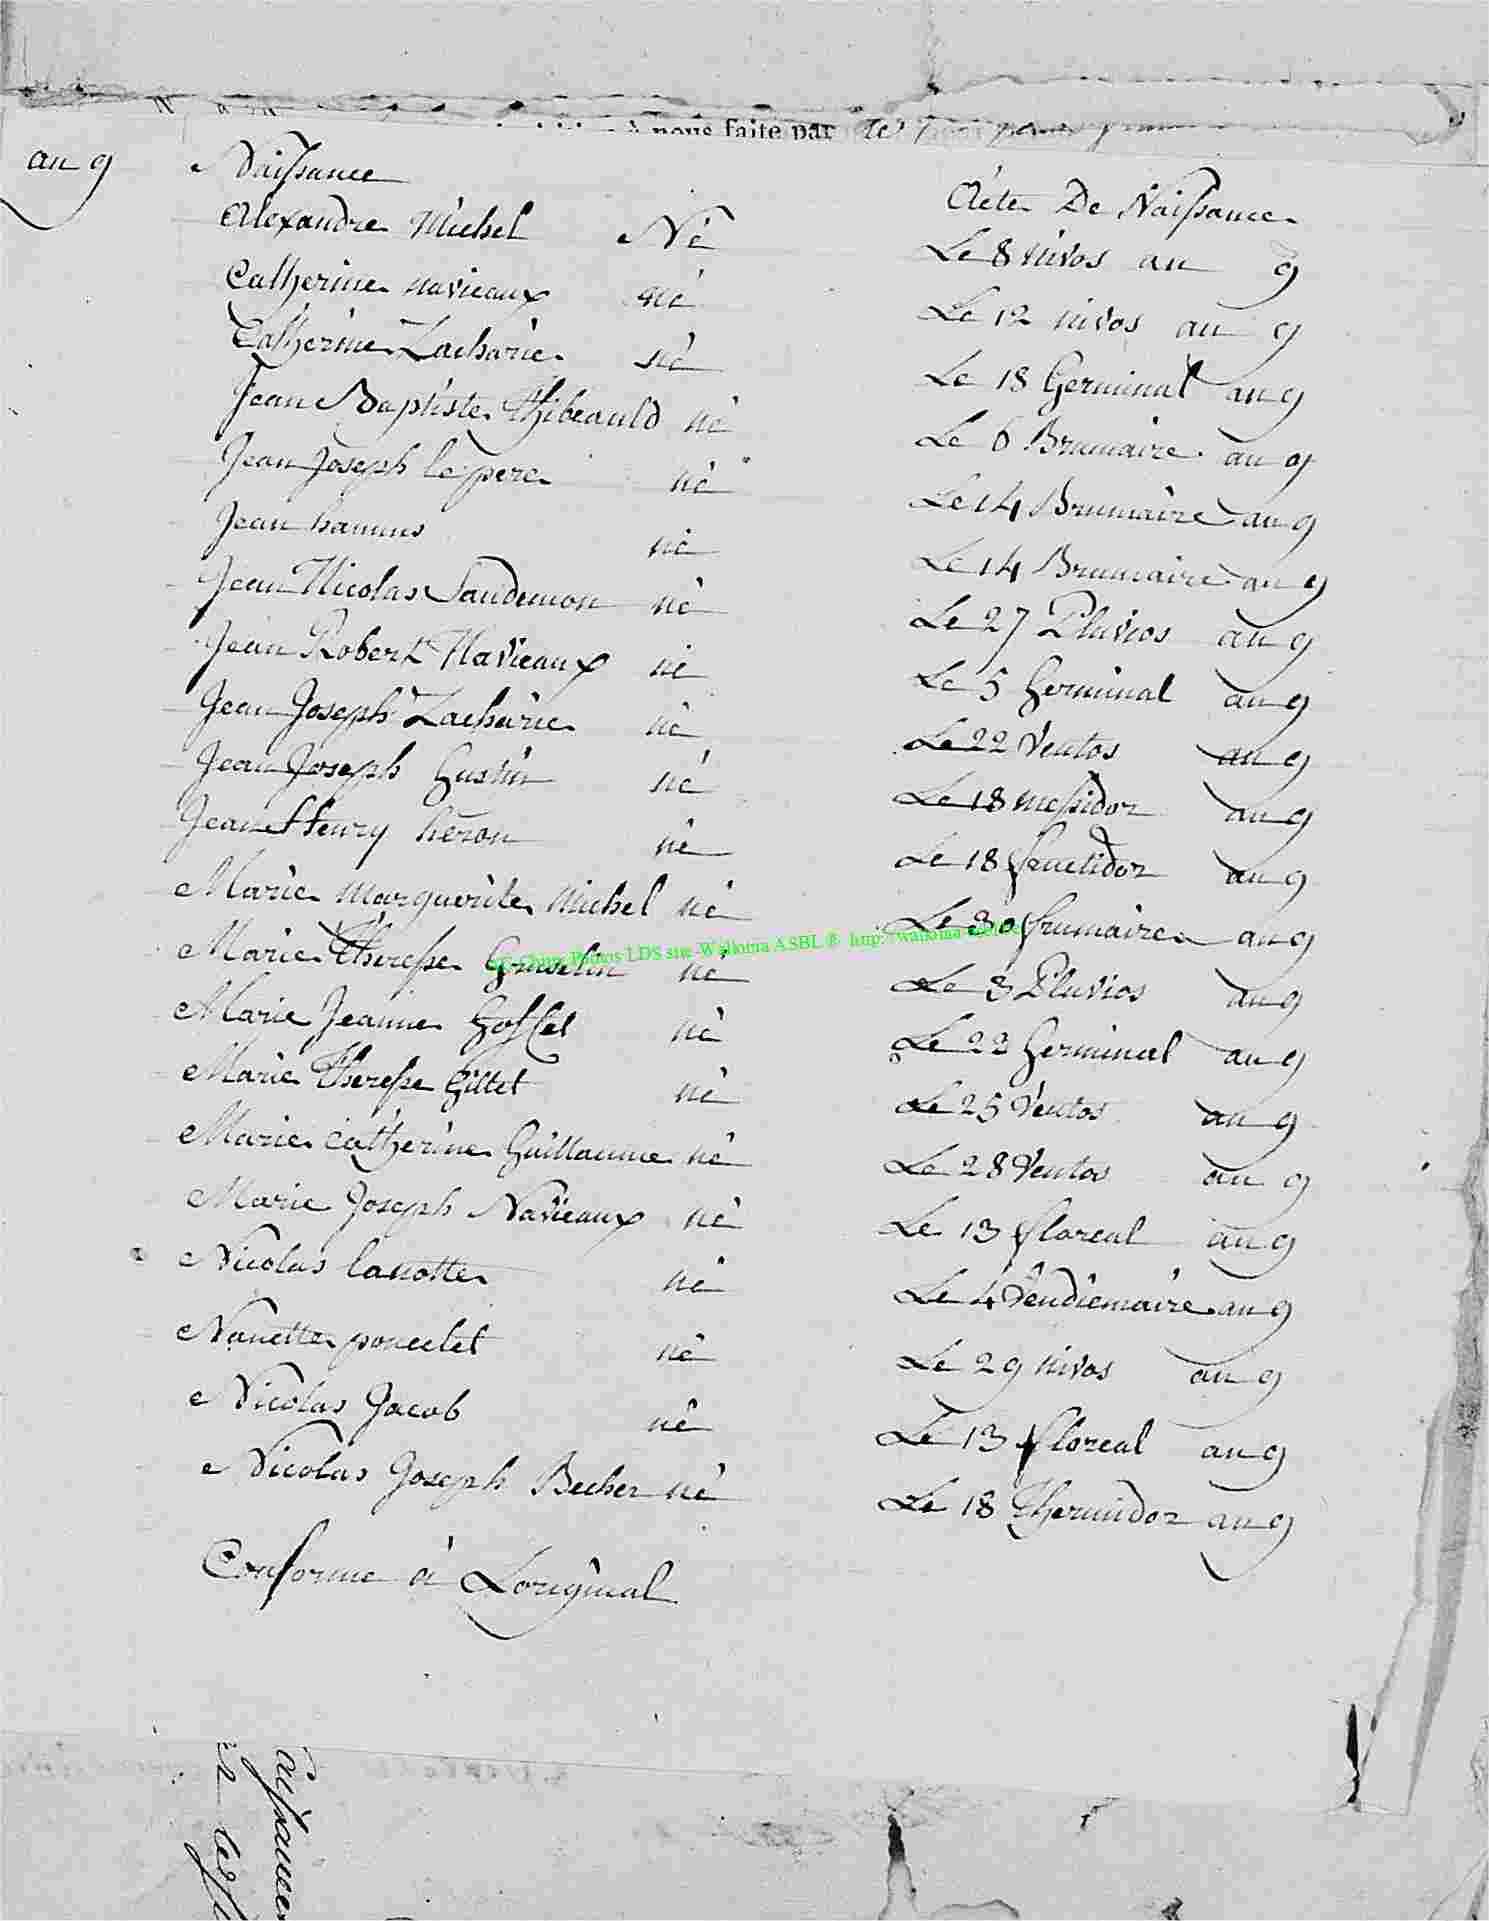 à nous faite par
an 9 Naissance Acte De Naissance
Alexandre Michel Né Le 8 nivos an 9
Catherine navieaux né Le 12 nivos an 9
Catherine Zacharie né Le 18 Germinal an 9
Jean Baptiste Thibeauld né Le 6 Brumaire an 9
Jean Joseph le pere né Le 14 Brumaire an 9
Jean né Le 14 Brumaire an 9
Jean Nicolas Saudemon né Le 27 Pluvios an 9
Jean Robert Navieaux né Le 5 Germinal an 9
Jean Joseph Zacharie né Le 22 Ventos an 9
Jean Joseph Gustin né Le 18 messidor an 9
Jean Henry héron né Le 18 fructidor an 9
Marie marguerite michel né Le 30 frumaire an 9
Marie Theresse né Le 3 Pluvios an 9
Photos LDS sur Wallonia ASBL ® http://wallonia-asbl.be
Marie Jeanne Gosset né Le 22 Germinal an 9
Marie Therese Gillet né Le 25 Ventos an 9
Marie Catherine Guillaume né Le 28 Ventos an 9
Marie Joseph Navieaux né Le 13 floreal an 9
Nicolas lanotte né Le 4 Vendiemaire an 9
Nanette poncelet né Le 29 nivos an 9
Nicolas Jacob né Le 13 floreal an 9
Nicolas Joseph Becher né Le 18 Thermidor an 9
Conforme à Loriginal